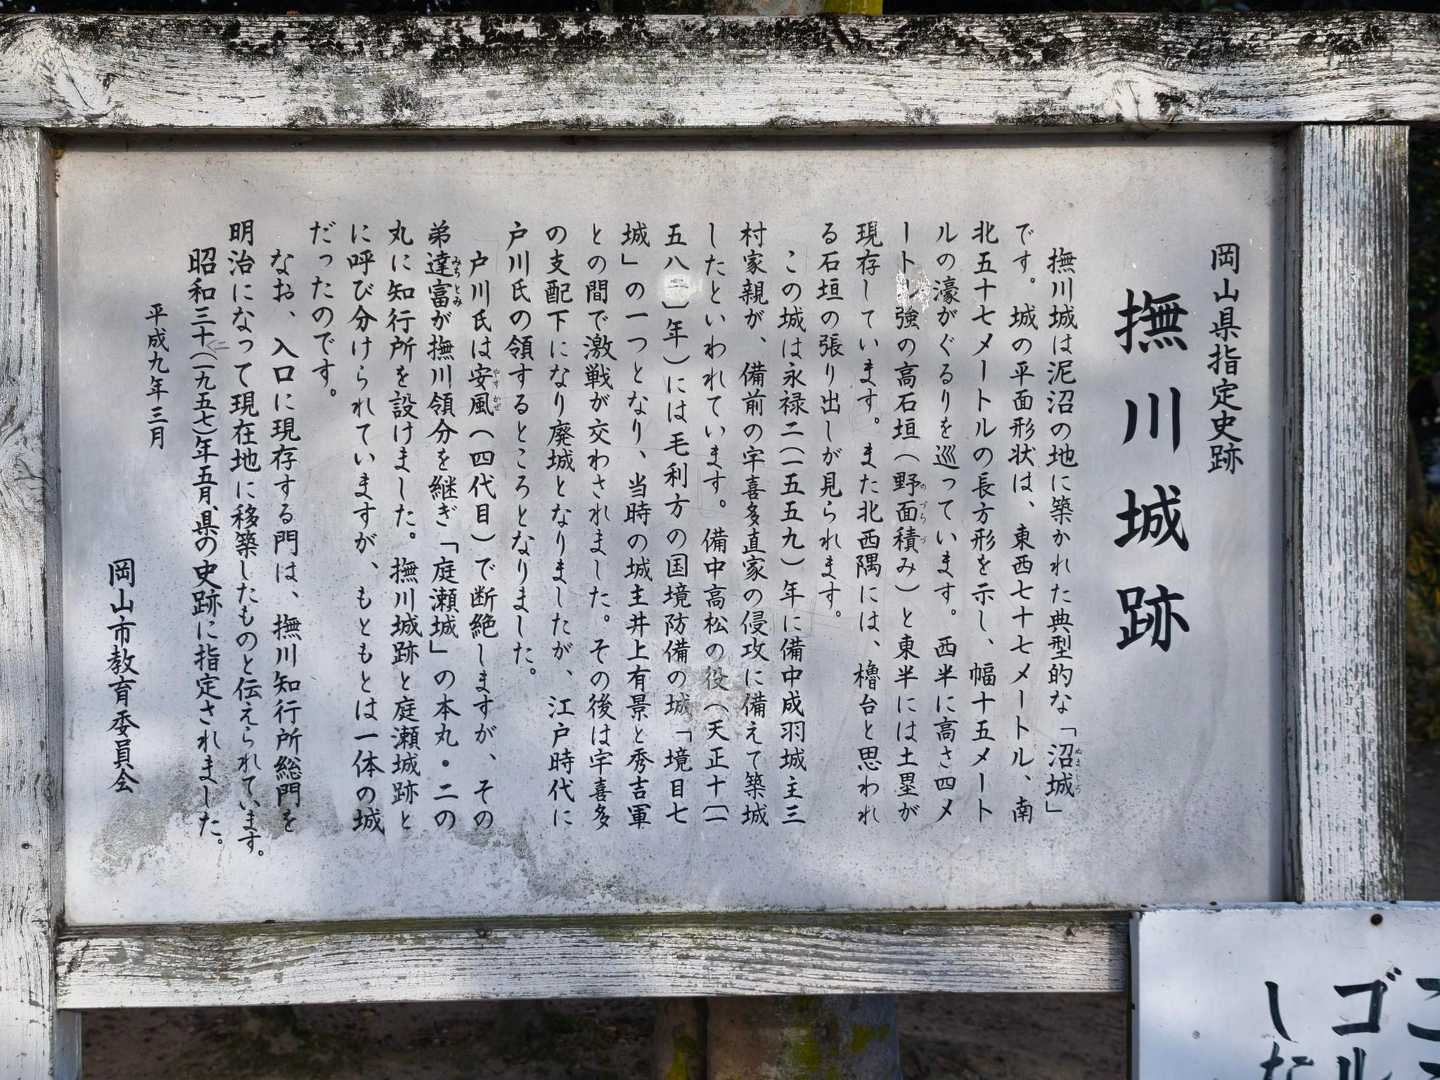 岡山県指定史跡
撫川城跡
撫川城は泥沼の地に築かれた典型的な「沼城」
です。城の平面形状は、東西七十七メートル、南
北五十七メートルの長方形を示し、幅十五メート
ルの濠がぐるりを巡っています。西半に高さ四メ
ートル強の高石垣(野面積み)と東半には土塁が
現存しています。また北西隅には、櫓台と思われ
る石垣の張り出しが見られます。
この城は永禄二(一五五九)年に備中成羽城主三
村家親が、備前の宇喜多直家の侵攻に備えて築城
したといわれています。備中高松の役(天正十〔一
五八二〕年)には毛利方の国境防備の城「境目七
城」の一つとなり、当時の城主井上有景と秀吉軍
との間で激戦が交わされました。その後は宇喜多
の支配下になり廃城となりましたが、江戸時代に
戸川氏の領するところとなりました。
戸川氏は安風(四代目)で断絶しますが、その
弟達富が撫川領分を継ぎ「庭瀬城」の本丸・二の
丸に知行所を設けました。撫川城跡と庭瀬城跡と
に呼び分けられていますが、もともとは一体の城
だったのです。
なお、入口に現存する門は、撫川知行所総門を
明治になって現在地に移築したものと伝えられています。
昭和三十二(一九五七)年五月、県の史跡に指定されました。
平成九年三月
岡山市教育委員会
ゴル
した